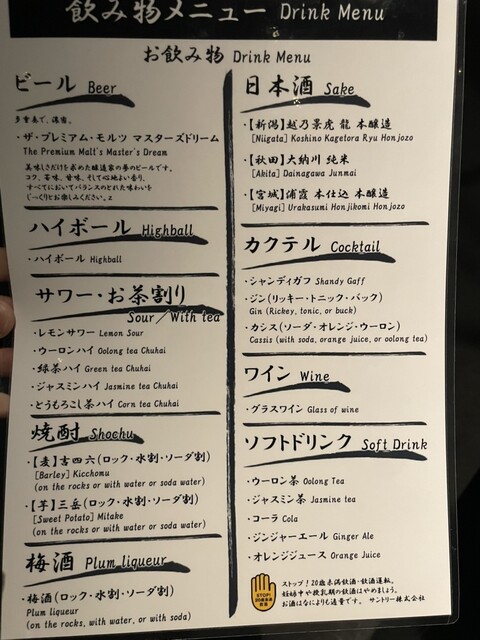 飲み物メニュー Drink Menu
お飲み物 Drink Menu
ビール Beer
多重奏で、濃密。
・ザ・プレミアム・モルツ マスターズドリーム
The Premium Malt's Master's Dream
美味しさだけを求めた醸造家の夢のビールです。
コク、苦味、甘味、そして心地よい香り。
すべてにおいてバランスのとれた味わいを
じっくりとお楽しみください。
ハイボール Highball
・ハイボール Highball
サワー・お茶割り
Sour/With tea
・レモンサワー Lemon Sour
・ウーロンハイ Oolong tea Chuhai
・緑茶ハイ Green tea Chuhai
・ジャスミンハイ Jasmine tea Chuhai
・とうもろこし茶ハイ Corn tea Chuhai
焼酎 Shochu
・【麦】吉四六(ロック・水割・ソーダ割)
[Barley] Kicchomu
(on the rocks or with water or soda water)
・【芋】三岳(ロック・水割・ソーダ割)
[Sweet Potato] Mitake
(on the rocks or with water or soda water)
梅酒 Plum liqueur
・梅酒(ロック・水割・ソーダ割)
Plum liqueur
(on the rocks, with water, or with soda)
日本酒 Sake
・【新潟】越乃景虎 龍 本醸造
[Niigata] Koshino Kagetora Ryu Honjozo
・【秋田】大納川 純米
[Akita] Dainagawa Junmai
・【宮城】浦霞 本仕込 本醸造
[Miyagi] Urakasumi Honjikomi Honjozo
カクテル Cocktail
・シャンディガフ Shandy Gaff
・ジン(リッキー・トニック・バック)
Gin (Rickey, tonic, or buck)
・カシス(ソーダ・オレンジ・ウーロン)
Cassis (with soda, orange juice, or oolong tea)
ワイン Wine
・グラスワイン Glass of wine
ソフトドリンク Soft Drink
・ウーロン茶 Oolong Tea
・ジャスミン茶 Jasmine tea
・コーラ Cola
・ジンジャーエール Ginger Ale
・オレンジジュース Orange Juice
STOP!
20歳未満
飲酒
ストップ!20歳未満飲酒・飲酒運転。
妊娠中や授乳期の飲酒はやめましょう。
お酒はなによりも適量です。 サントリー株式会社